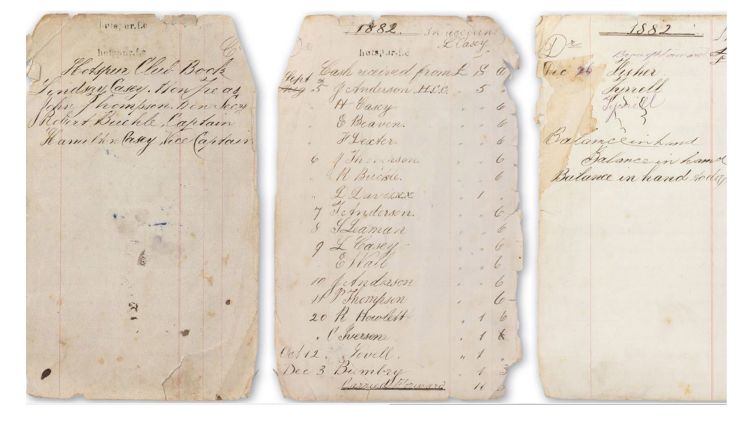 hotspur.f.c
hotspur.f.c
Hotspur Club Book
Lyndsay Casey. Hon
John Thompson
Robert Buckle Captain
Hamilton Casey Vice Captain
1882.
L Casey
hotspur.f.c
Cash received from £ S d
Sept 5 J Anderson . 5 .
H Casey 6
E Beaven. 6
F Dexter . . 6
6 J Thompson 6
R Buckle . 6
D Davies . 1 .
7 T. Anderson. 6
8 S Leaman 6
9 L Casey . 6
E Wall 6
10 J Anderson . . 6
11 P Thompson 6
20 R Howlett . 1 6
C Iverson . 1 6
Oct 12. Lovell. " 1 .
Dec 3 Bumbry 1 3
Carried Forward
1882
Dr
Dec 26 Fisher
Tyrell
Tyrell
Balance in hand
Balance in hand
Balance in hand today